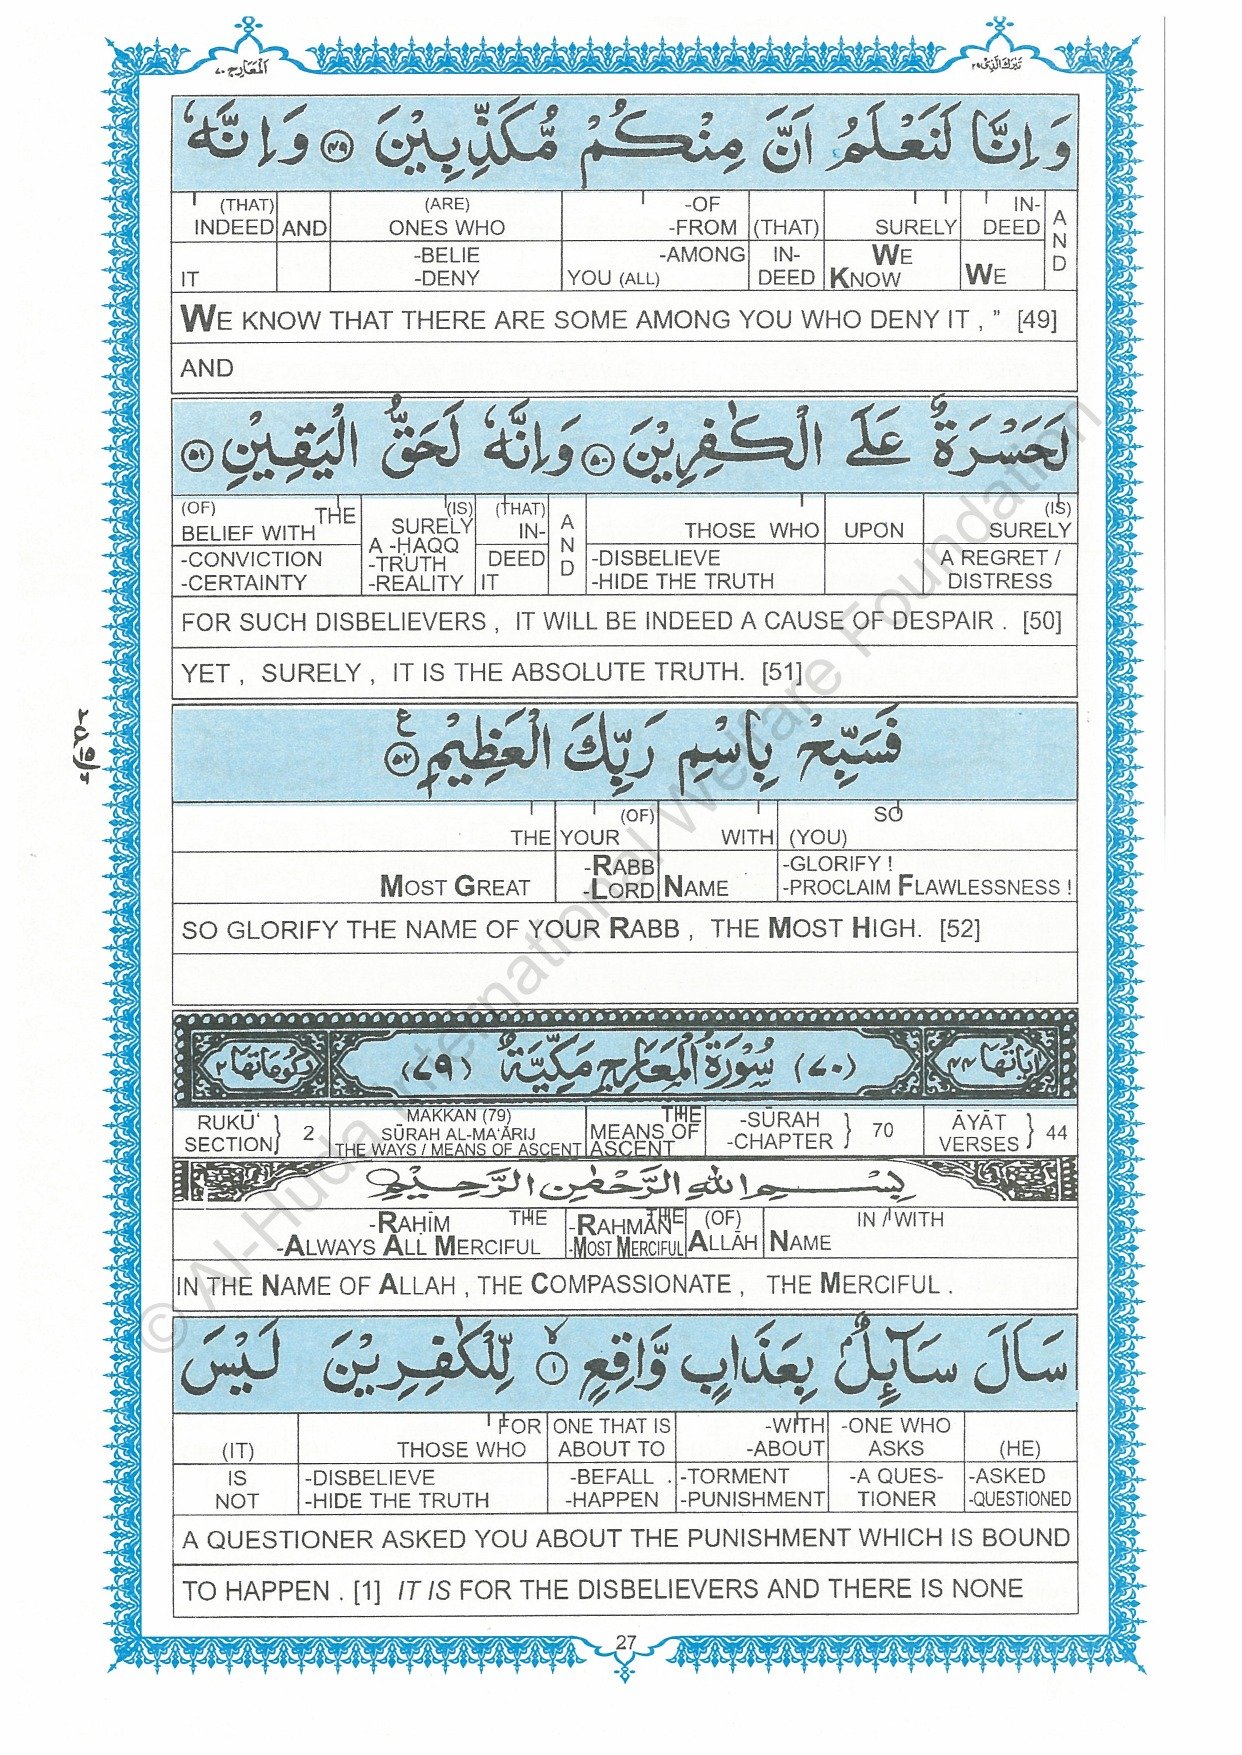 اَلْمَعَارِج ٧٠
تَبٰرَكَ الَّذِىْ ٢٩
وَ اِنَّا لَنَعْلَمُ اَنَّ مِنْكُمْ مُّكَذِّبِيْنَ ﴿٤٩﴾ وَ اِنَّهٗ
(THAT) (ARE) -OF IN- A
INDEED AND ONES WHO -FROM (THAT) SURELY DEED N
-BELIE -AMONG IN- WE D
IT -DENY YOU (ALL) DEED KNOW WE
WE KNOW THAT THERE ARE SOME AMONG YOU WHO DENY IT , ” [49]
AND
لَحَسْرَةٌ عَلَى الْكٰفِرِيْنَ ﴿٥٠﴾ وَ اِنَّهٗ لَحَقُّ الْيَقِيْنِ ﴿٥١﴾
(OF) THE (IS) (THAT) (IS)
BELIEF WITH SURELY IN- A THOSE WHO UPON SURELY
-CONVICTION A -HAQQ DEED N -DISBELIEVE A REGRET /
-CERTAINTY -TRUTH IT D -HIDE THE TRUTH DISTRESS
-REALITY
FOR SUCH DISBELIEVERS , IT WILL BE INDEED A CAUSE OF DESPAIR . [50]
YET , SURELY , IT IS THE ABSOLUTE TRUTH. [51]
فَسَبِّحْ بِاسْمِ رَبِّكَ الْعَظِيْمِ ﴿٥٢﴾ ع
(OF) SO
THE YOUR WITH (YOU)
-RABB -GLORIFY !
MOST GREAT -LORD NAME -PROCLAIM FLAWLESSNESS !
SO GLORIFY THE NAME OF YOUR RABB , THE MOST HIGH. [52]
اٰيَاتُهَا ٤٤ (٧٠) سُوْرَةُ الْمَعَارِجِ مَكِّيَّةٌ (٧٩) رُكُوْعَاتُهَا ٢
RUKŪ‘ MAKKAN (79) THE -SŪRAH ĀYĀT
SECTION } 2 SŪRAH AL-MA‘ĀRIJ MEANS OF -CHAPTER } 70 VERSES } 44
THE WAYS / MEANS OF ASCENT ASCENT
بِسْمِ اللّٰهِ الرَّحْمٰنِ الرَّحِيْمِ
-RAḤĪM THE -RAHMĀN THE (OF) IN / WITH
-ALWAYS ALL MERCIFUL -MOST MERCIFUL ALLĀH NAME
IN THE NAME OF ALLAH , THE COMPASSIONATE , THE MERCIFUL .
سَاَلَ سَآئِلٌۢ بِعَذَابٍ وَّاقِعٍ ﴿١﴾ لِّلْكٰفِرِيْنَ لَيْسَ
FOR ONE THAT IS -WITH -ONE WHO
(IT) THOSE WHO ABOUT TO -ABOUT ASKS (HE)
IS -DISBELIEVE -BEFALL . -TORMENT -A QUES- -ASKED
NOT -HIDE THE TRUTH -HAPPEN -PUNISHMENT TIONER -QUESTIONED
A QUESTIONER ASKED YOU ABOUT THE PUNISHMENT WHICH IS BOUND
TO HAPPEN . [1] IT IS FOR THE DISBELIEVERS AND THERE IS NONE
27
© Al-Huda International Welfare Foundation